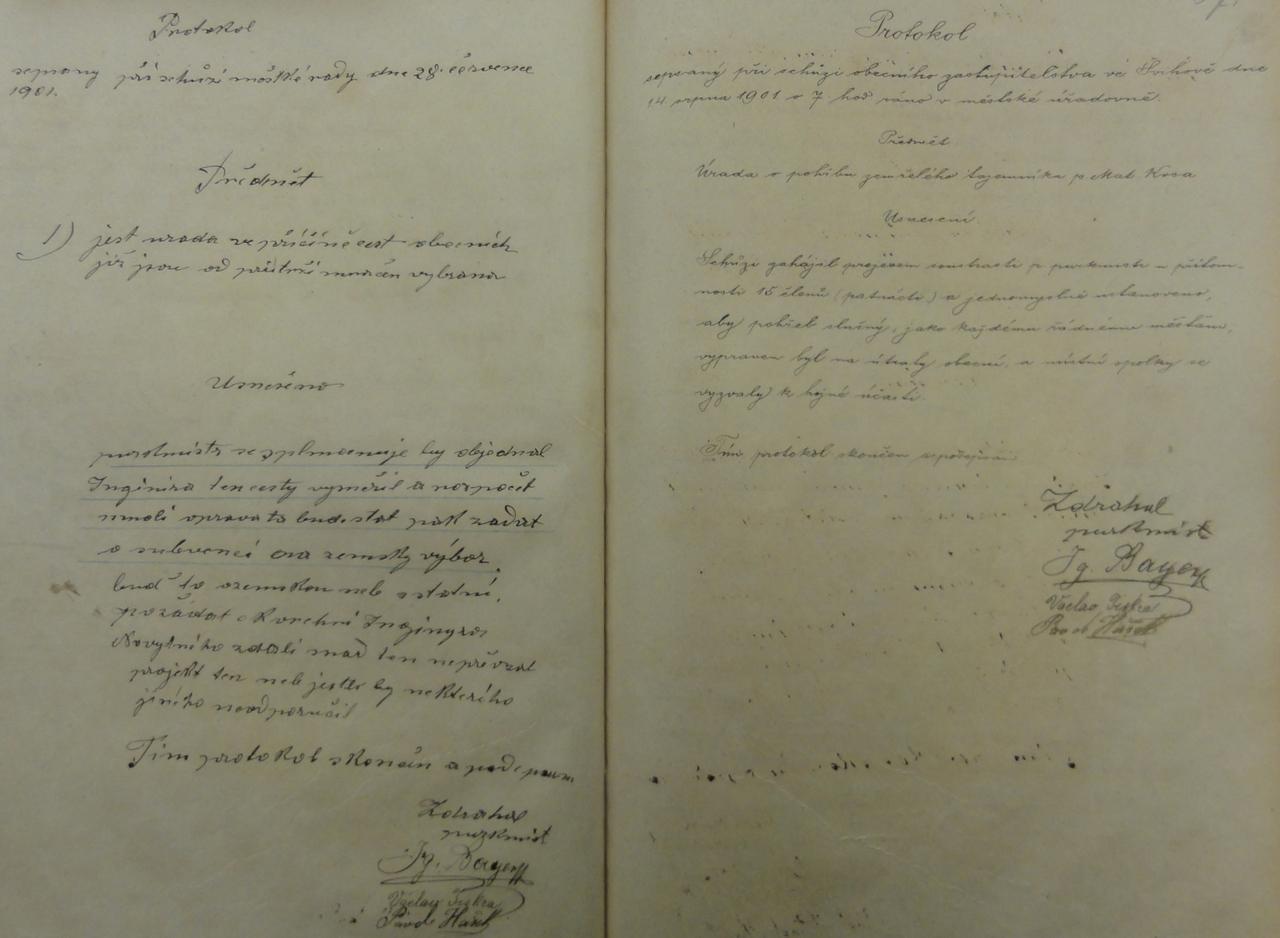 Protokol
sepsaný při schůzi městské rady dne 28. července
1901.
Předmět
1) jest urada ve příčíně cest obecních
již jsou od přístní morčán vybrana
Usneseno
purkmistr se splnomocnuje by objednal
Inginira ten cesty vyměřil a rozpočet
mnoli oprava ta bude stat pak zadat
o subvenci ova zemsky výbor.
buď to ozemskou neb statní.
požádat Vrchní Inginyra
Novytniho zdali mad ten nepřevzal
projekt ten neb jestli by nekteriho
jiniho neodporučil
Tim protokol skončen a podepsan
Zdrahal
purkmist
Ig. Bayer
Václav Jiskra
Pavel Hašek
Protokol
sepsaný při schůzi obecního zastupitelstva ve Švihově dne
14. srpna 1901 o 7 hod ráno v městské úřadovně.
Předmět
Úrada o pohřbu zemřelého tajemníka p. Mat. Kosa
Usnesení
Schůzi zahájil projevem soustrasti p. purkmistr u přítom-
nosti 15 členů (patnácti) a jednomyslně ustanoveno,
aby pohřeb slušný, jako každému řádnému měšťanu,
vypraven byl na útraty obecní, a místní spolky se
vyzvaly k hojné účasti.
Tím protokol skončen a podepsán
Zdrahal
purkmist
Ig. Bayer
Václav Jiskra
Pavel Hašek